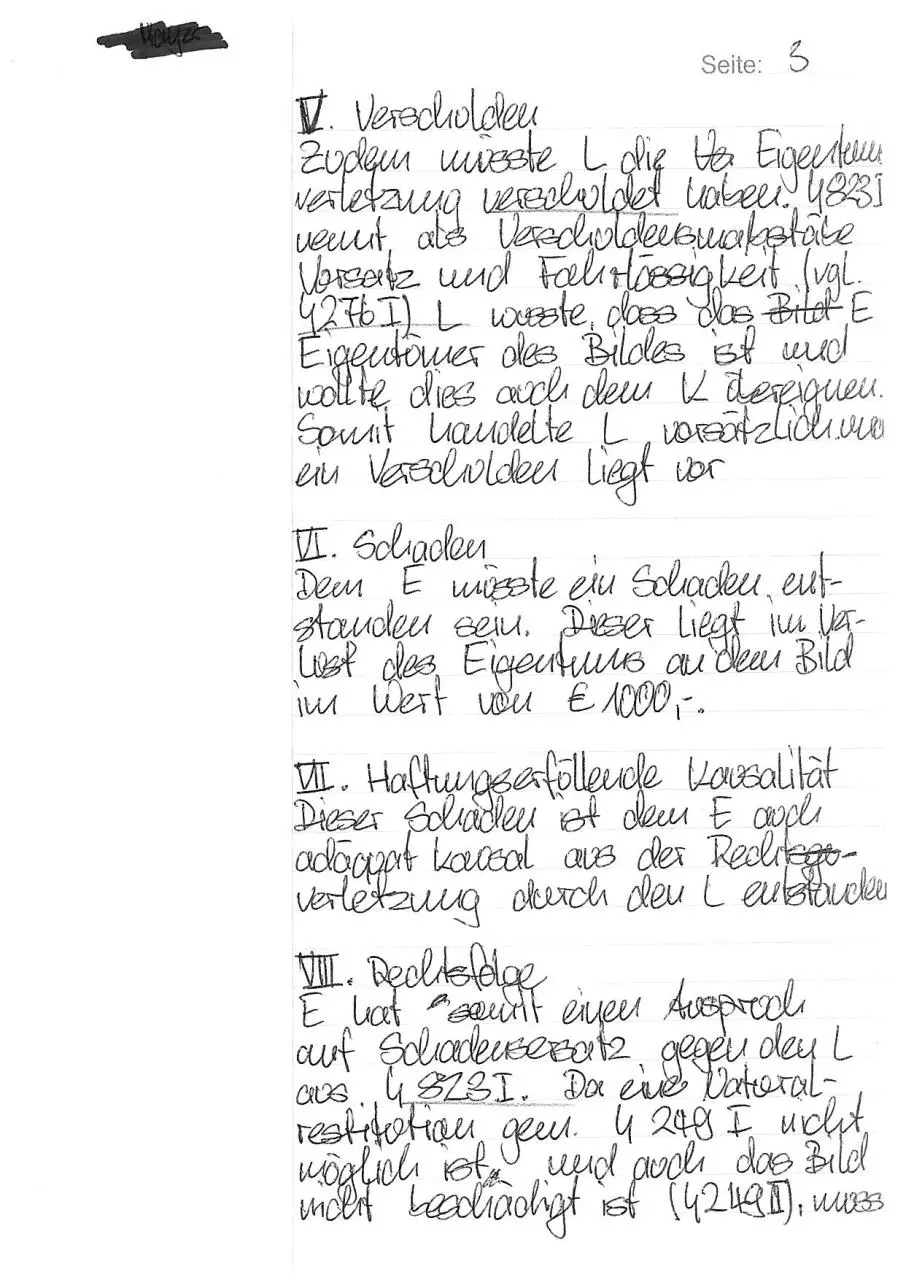 Seite: 3
V. Verschulden
Zudem müsste L die Eigentum
verletzung verschuldet haben. § 823 I
nennt als Verschuldensmaßstäbe
Vorsatz und Fahrlässigkeit (vgl.
§ 276 I) L wusste, dass das Bild E
Eigentümer des Bildes ist und
wollte dies auch dem K übereignen.
Somit handelte L vorsätzlich und
ein Verschulden liegt vor
VI. Schaden
Dem E müsste ein Schaden ent-
standen sein. Dieser liegt im Ver-
lust des Eigentums an dem Bild
im Wert von € 1000,-.
VII. Haftungserfüllende Kausalität
Dieser Schaden ist dem E auch
adäquat kausal aus der Rechtsgu-
verletzung durch den L entstanden
VIII. Rechtsfolge
E hat somit einen Anspruch
auf Schadensersatz gegen den L
aus § 823 I. Da eine Natural-
restitution gem. § 249 I nicht
möglich ist und auch das Bild
nicht beschädigt ist (§ 249 II), muss